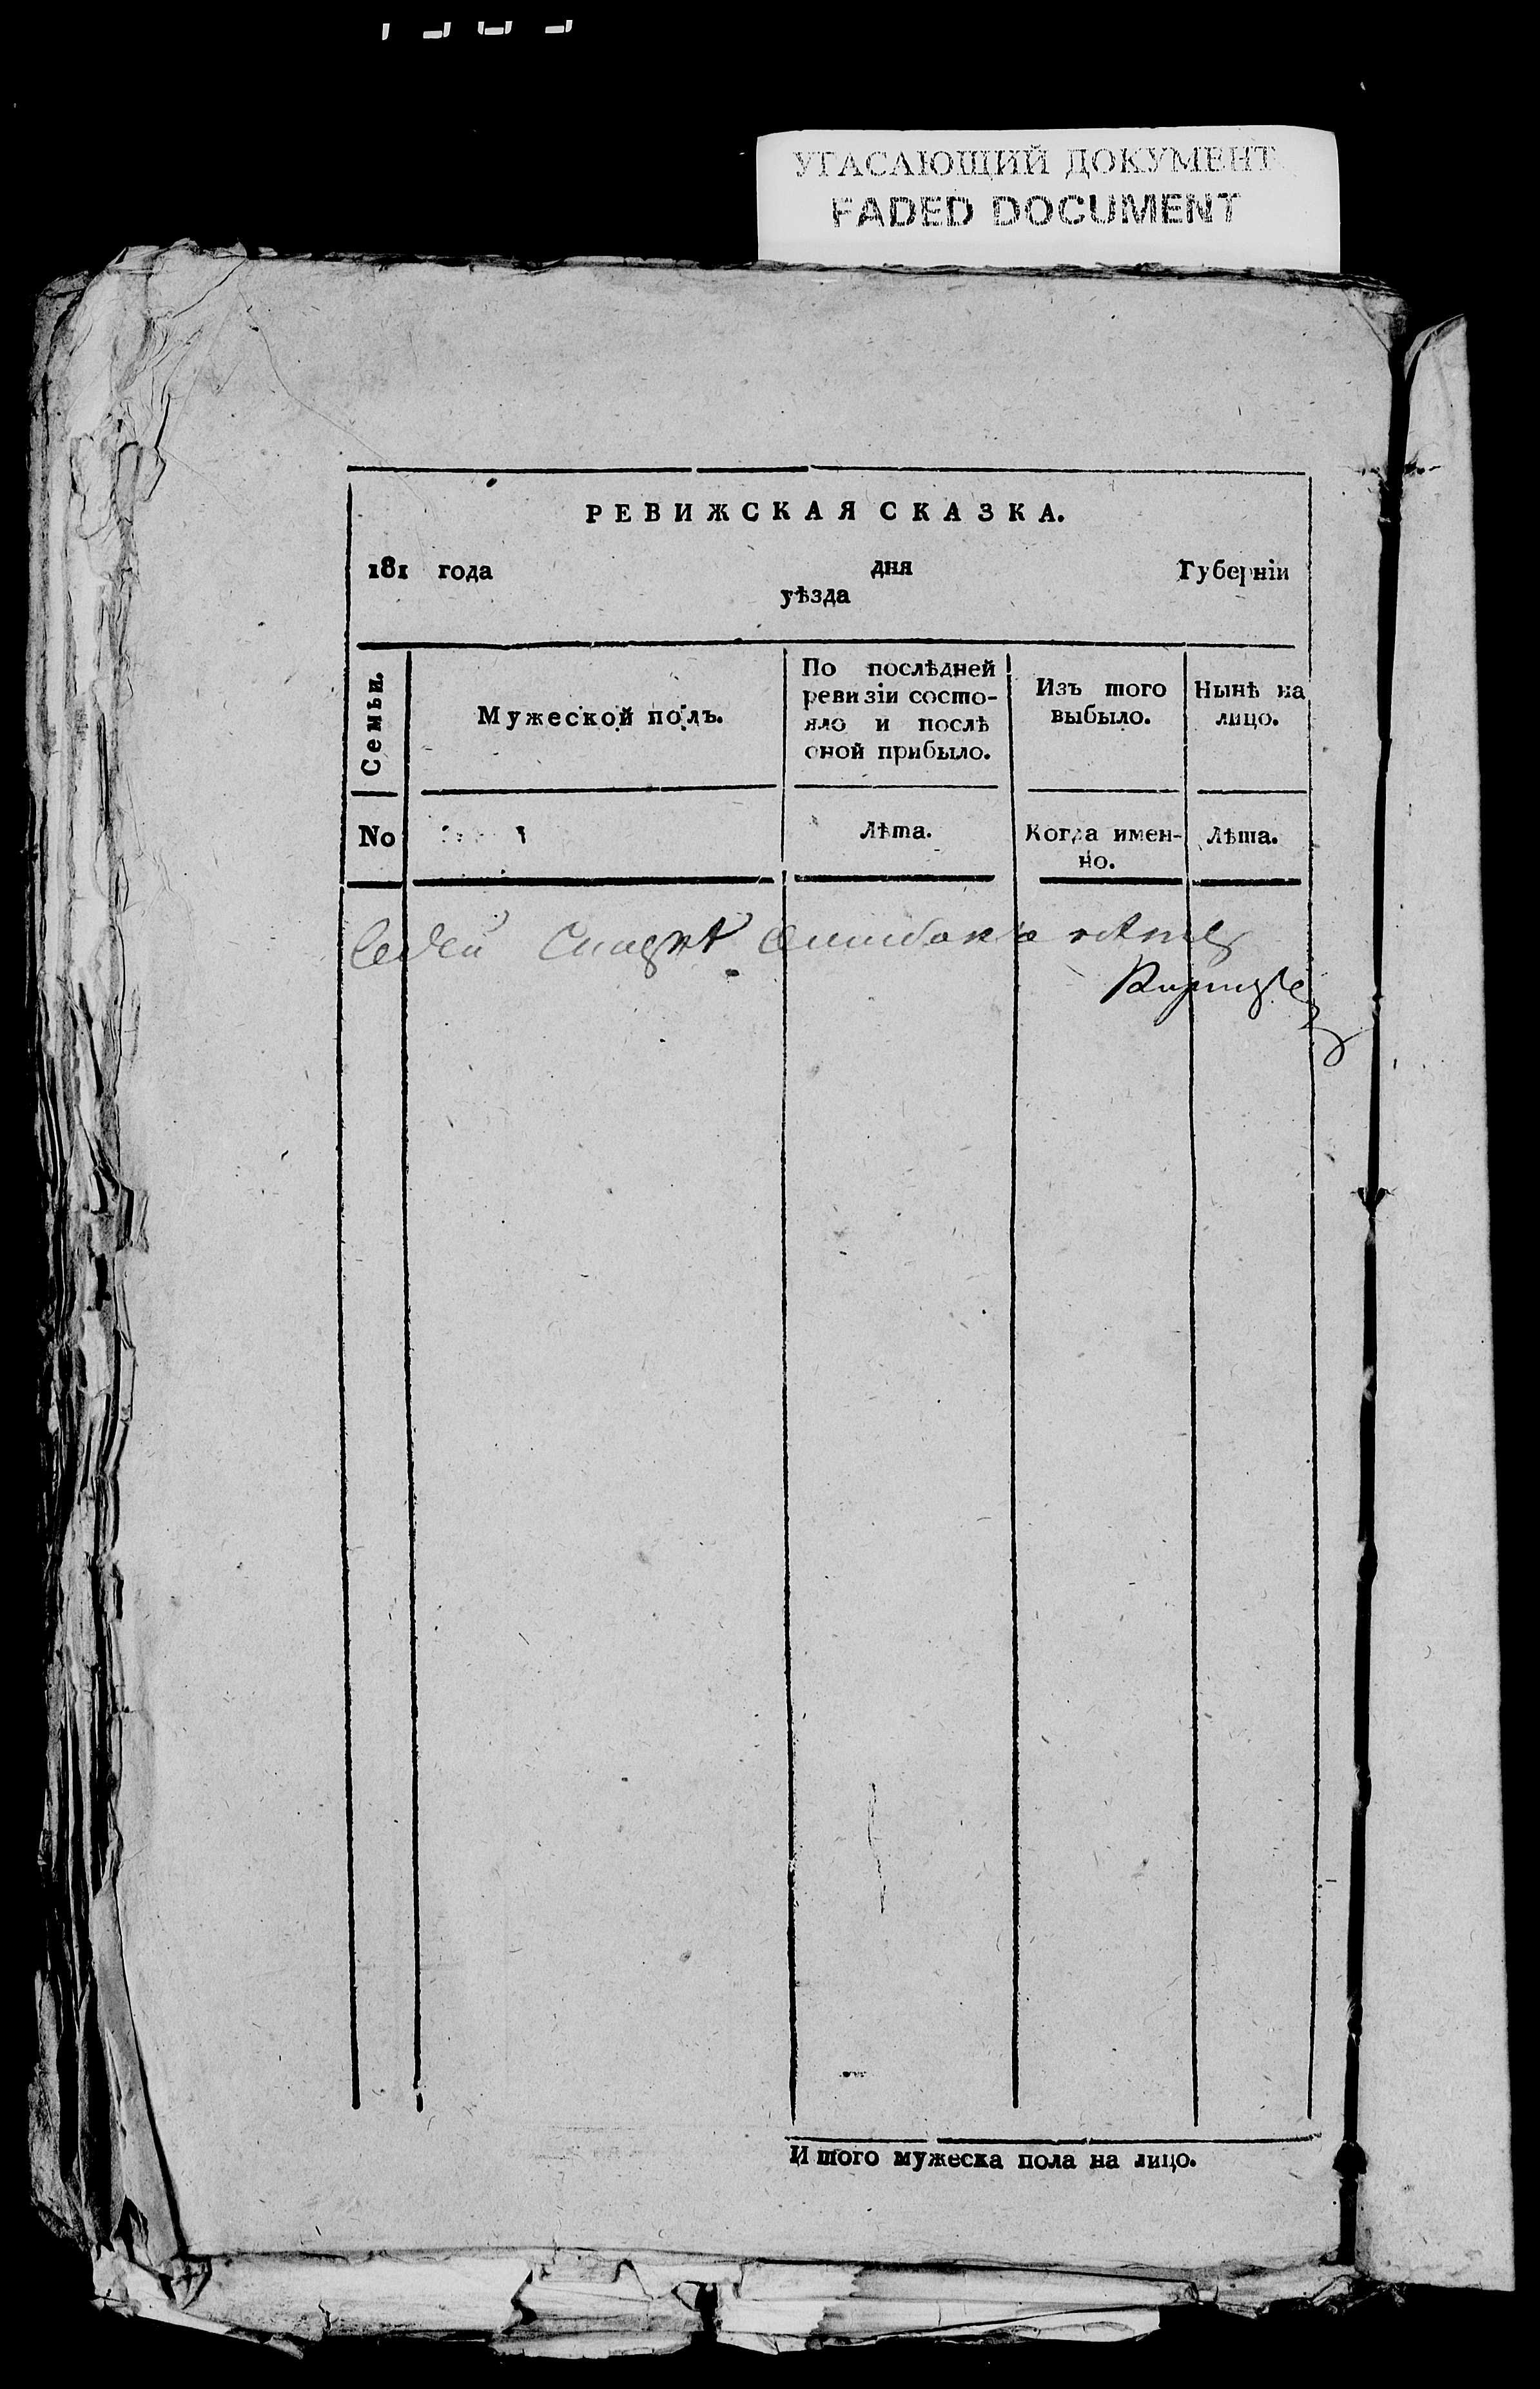 УГАСАЮЩИЙ ДОКУМЕНТ
FADED DOCUMENT
РЕВИЖСКАЯ СКАЗКА.
181 года дня Губерніи
уѣзда
Семьи.
Мужеской полъ.
По послѣдней
ревизіи состо-
яло и послѣ
оной прибыло.
Изъ того
выбыло.
Нынѣ на
лицо.
No
Лѣта.
Когда имен-
но.
Лѣта.
Итого мужеска пола на лицо.